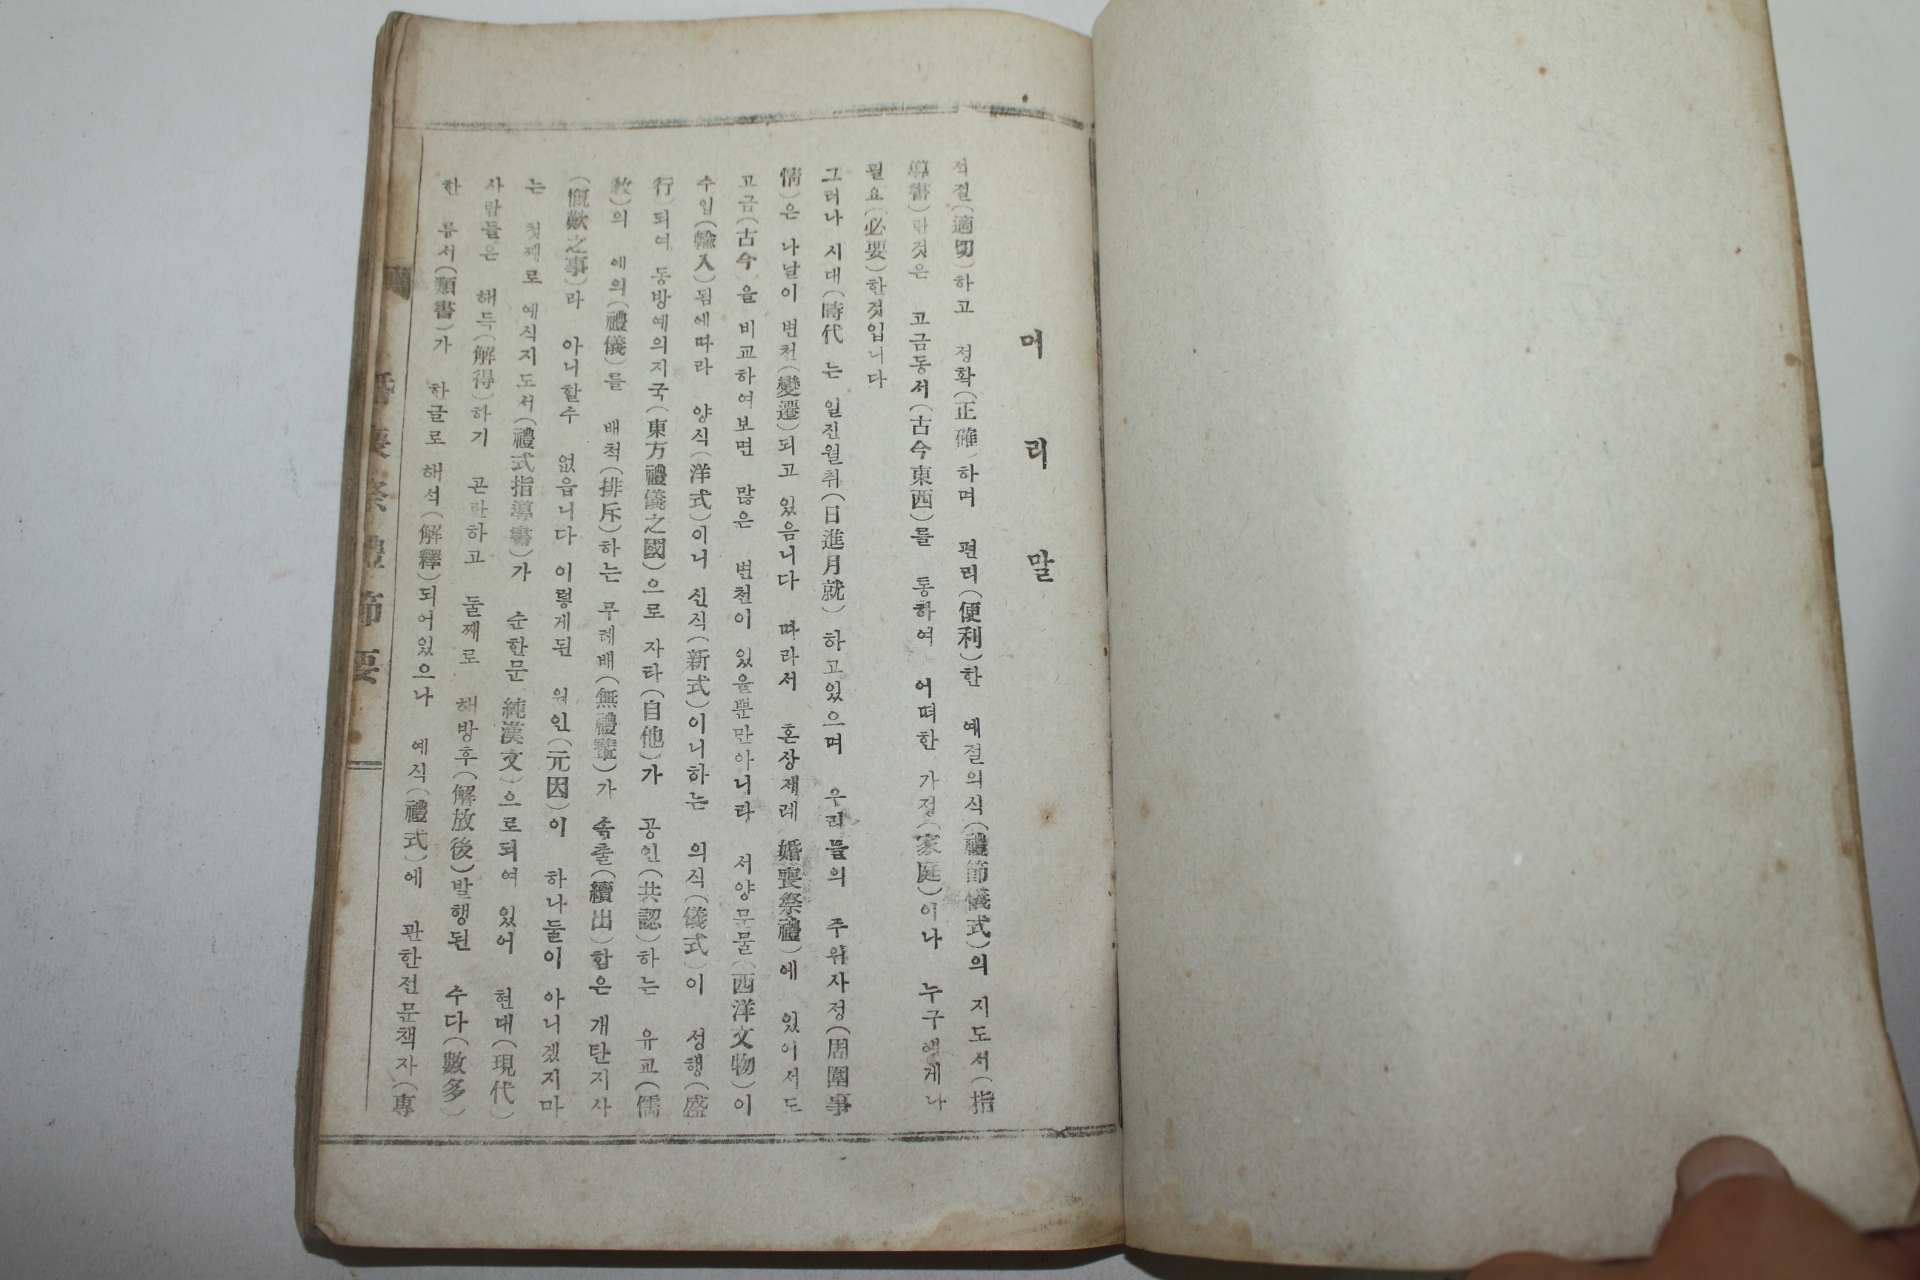 머리말
적절(適切)하고 정확(正確)하며 편리(便利)한 예절의식(禮節儀式)의 지도서(指
導書)란것은 고금동서(古今東西)를 통하여 어떠한 가정(家庭)이나 누구에게나
필요(必要)한것입니다
그러나 시대(時代 는 일진월취(日進月就) 하고있으며 우리들의 주위사정(周圍事
情)은 나날이 변천(變遷)되고 있음니다 따라서 혼상제례(婚喪祭禮)에 있어서도
고금(古今)을 비교하여보면 많은 변천이 있을뿐만아니라 서양문물(西洋文物)이
수입(輸入)됨에따라 양식(洋式)이니 신식(新式)이니하는 의식(儀式)이 성행(盛
行)되여 동방예의지국(東方禮儀之國)으로 자타(自他)가 공인(共認)하는 유교(儒
教)의 예의(禮儀)를 배척(排斥)하는 무례배(無禮輩)가 속출(續出)함은 개탄지사
(慨歎之事)라 아니할수 없읍니다 이렇게된 원인(元因)이 하나둘이 아니겠지마
는 첫째로 예식지도서(禮式指導書)가 순한문 純漢文)으로되여 있어 현대(現代)
사람들은 해득(解得)하기 곤란하고 둘째로 해방후(解放後)발행된 수다(數多)
한 류서(類書)가 한글로 해석(解釋)되어있으나 예식(禮式)에 관한전문책자(專
婚喪祭禮節要